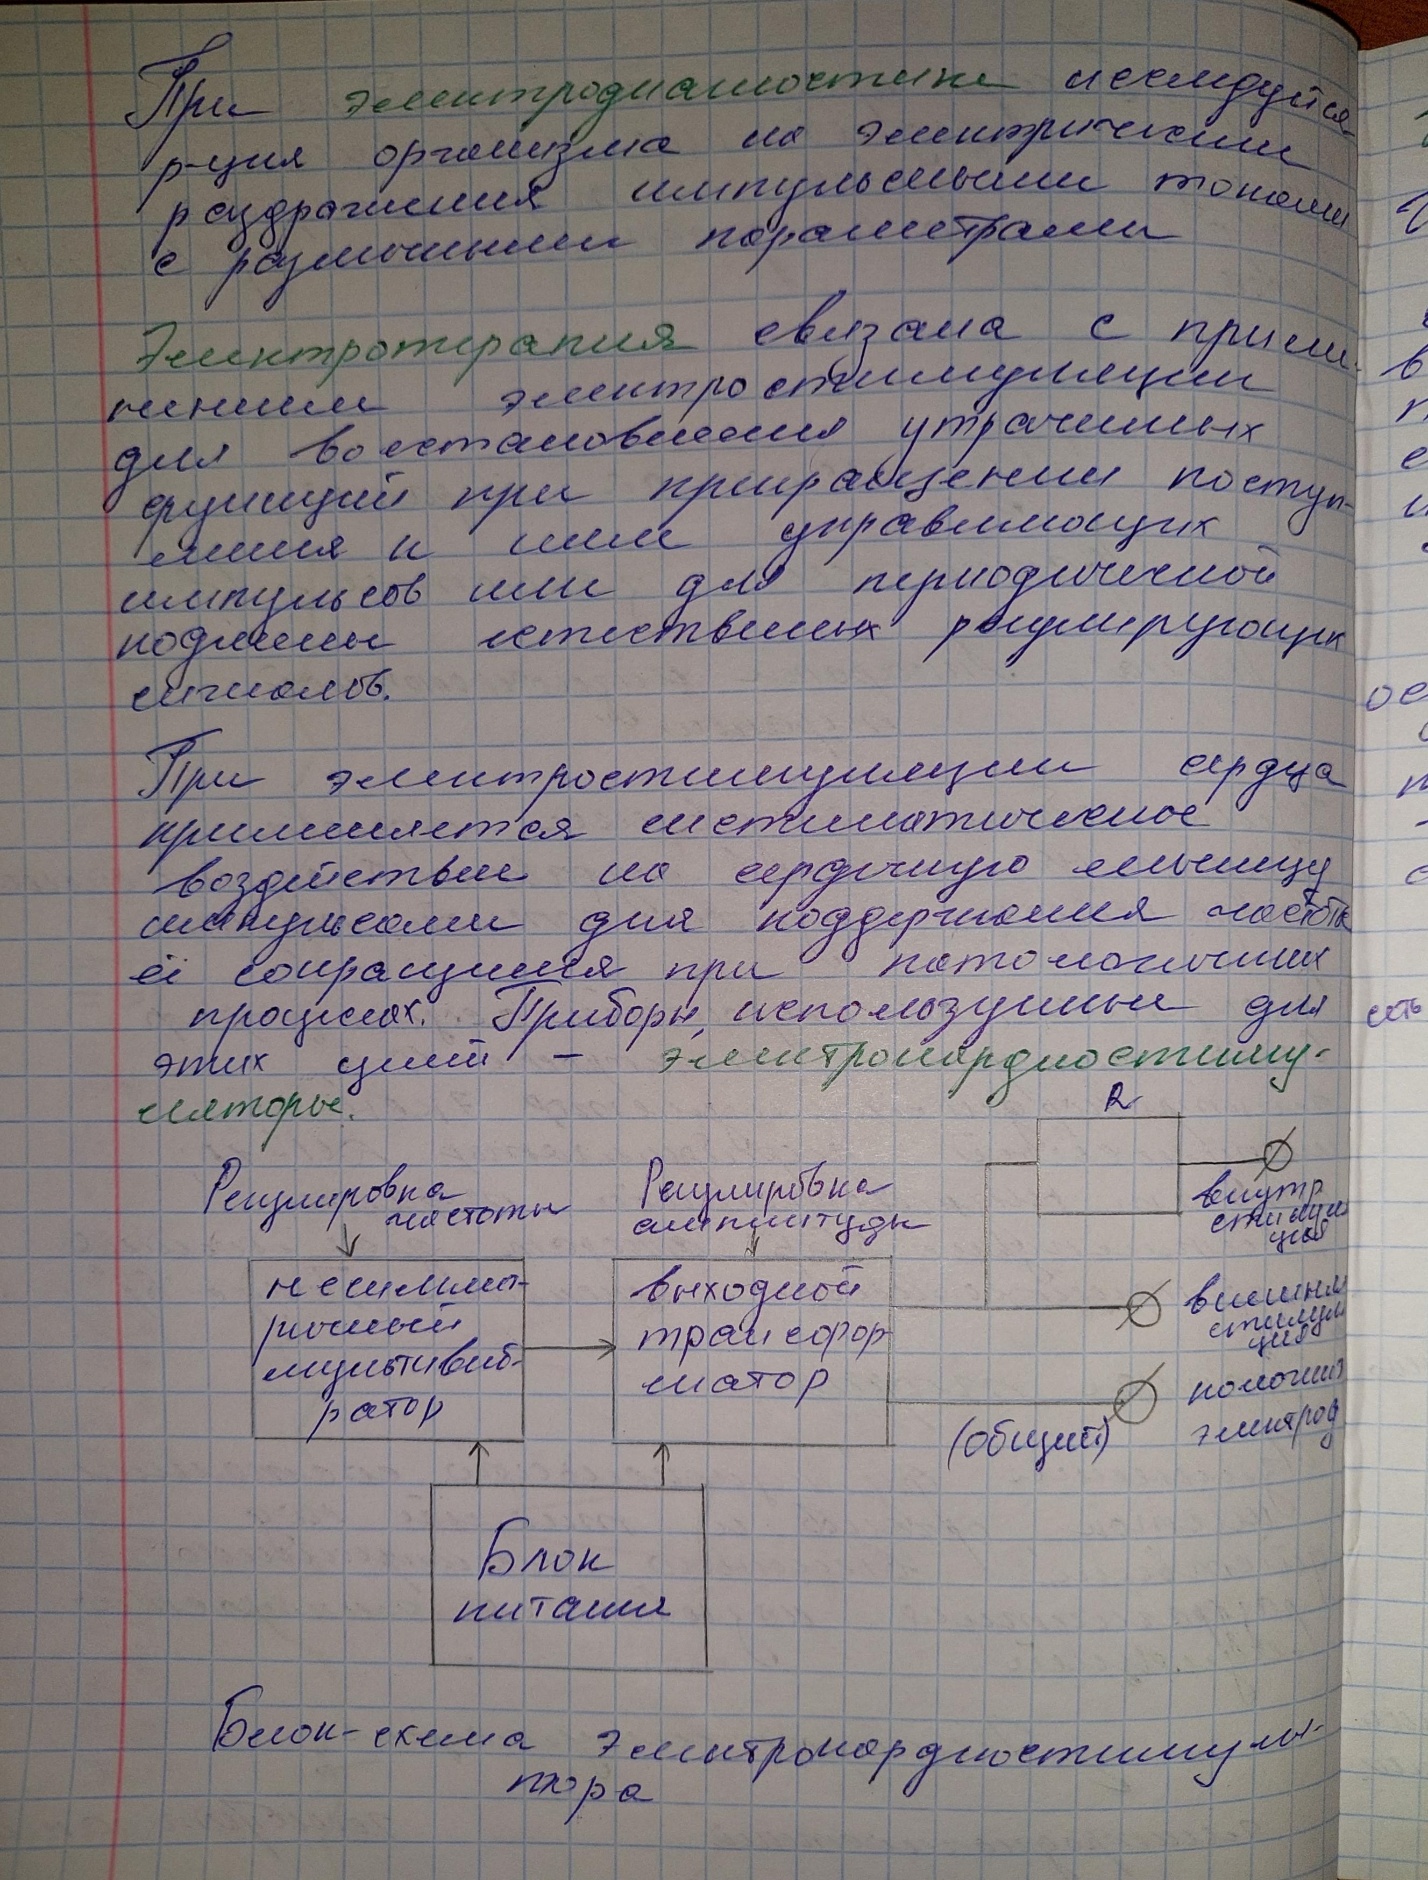 При электродиагностике исследуется
р-ция организма на электрические
раздражения импульсными токами
с различными параметрами
Электротерапия связана с приме-
нением электростимуляции
для восстановления утраченных
функций при прекращении поступ-
ления к ним управляющих
импульсов или для периодической
подмены естественных регулирующих
сигналов.
При электростимуляции сердца
применяется систематическое
воздействие на сердечную мышцу
импульсами для поддержания частоты
её сокращения при патологичных
процессах. Приборы, используемые для
этих целей – электрокардиостиму-
ляторы.
R
Регулировка
частоты
Регулировка
амплитуды
внутр
стимуля
ция
несиммет-
ричный
мультивиб-
ратор
выходной
трансфор
матор
внешняя
стимуля
ция
(общий)
электрод
Блок
питания
Блок-схема электрокардиостимуля-
тора